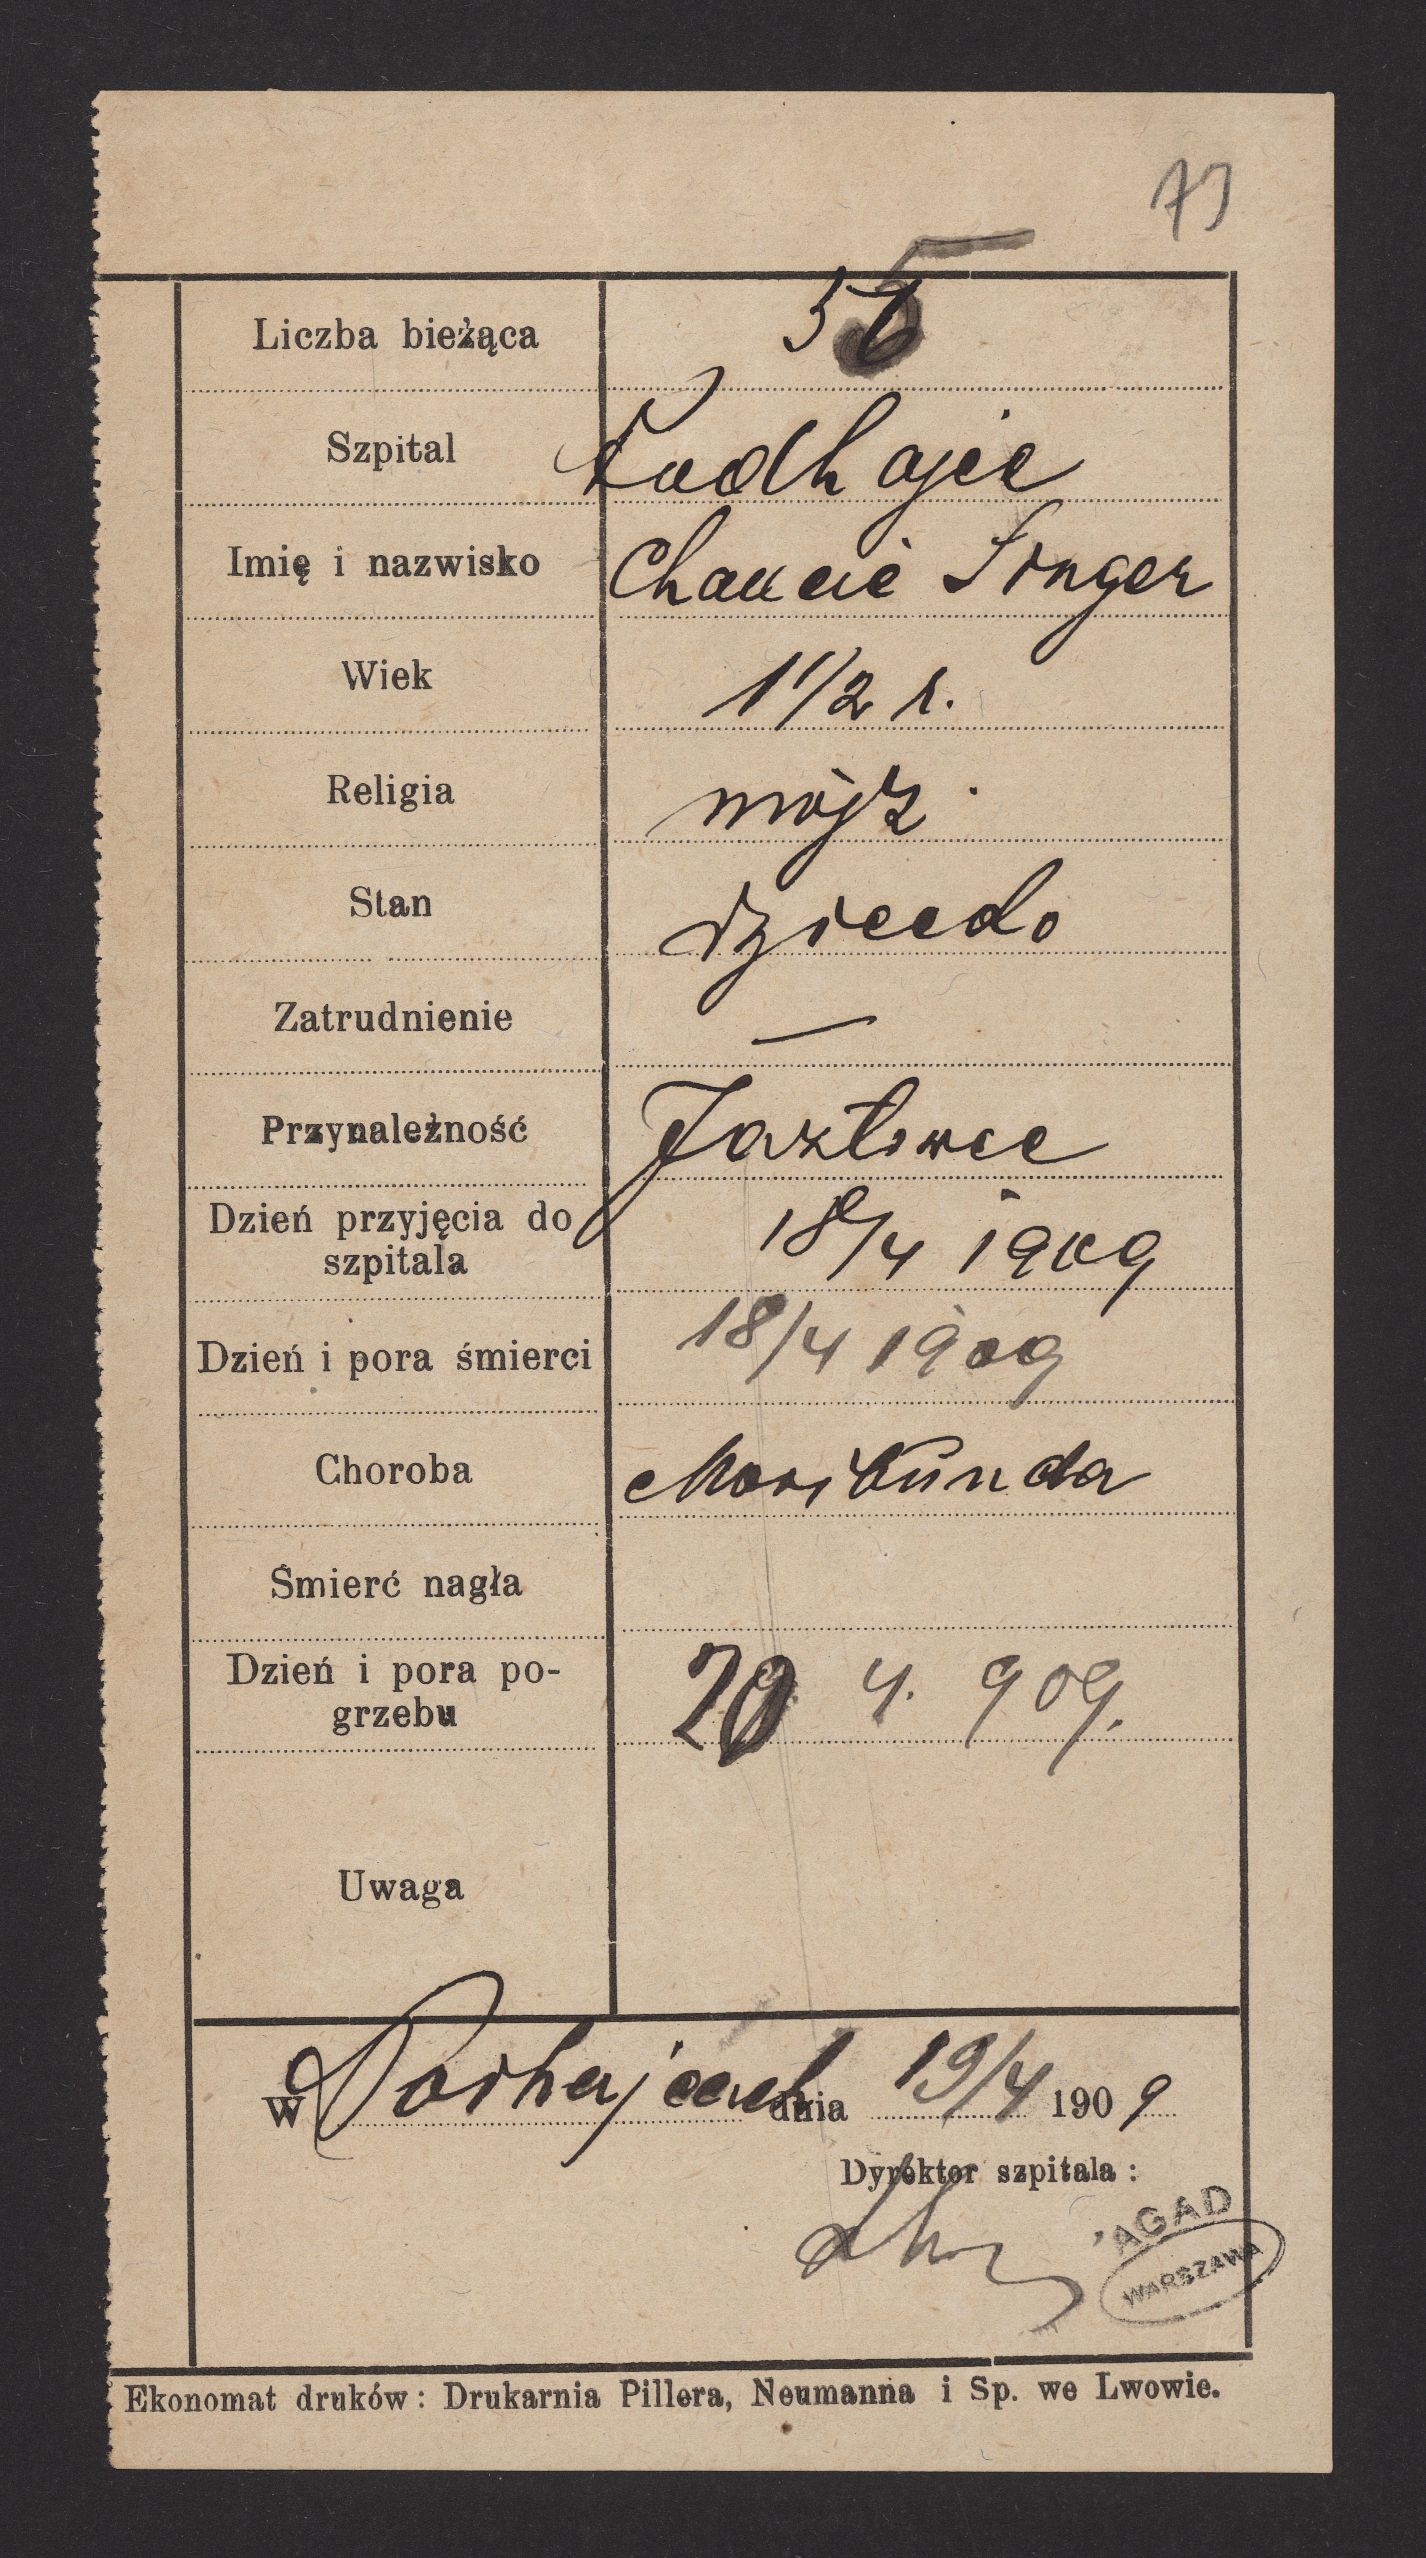 73
Liczba bieżąca 35
Szpital Podhajce
Imię i nazwisko Singer
Wiek 1 1/2 r.
Religia mojż.
Stan dziecko
Zatrudnienie —
Przynależność Jazłowce
Dzień przyjęcia do
szpitala 18/4 1909
Dzień i pora śmierci 18/4 1909
Choroba Moribunda
Śmierć nagła
Dzień i pora po-
grzebu 20 4. 909.
Uwaga
w Podhajcach dnia 19/4 1909
Dyrektor szpitala:
AGAD
WARSZAWA
Ekonomat druków: Drukarnia Pillera, Neumanna i Sp. we Lwowie.